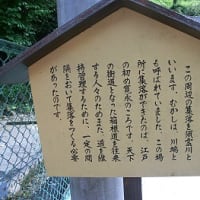 この周辺の集落を須雲川と
いいます。むかしは、川端と
も呼ばれていました。この場
所に集落ができたのは、江戸
の初め寛永のころです。天下
の街道となった箱根道を往来
する人々のためまた、道を維
持管理するために、一定の間
隔をおいて集落をつくる必要
があったのです。